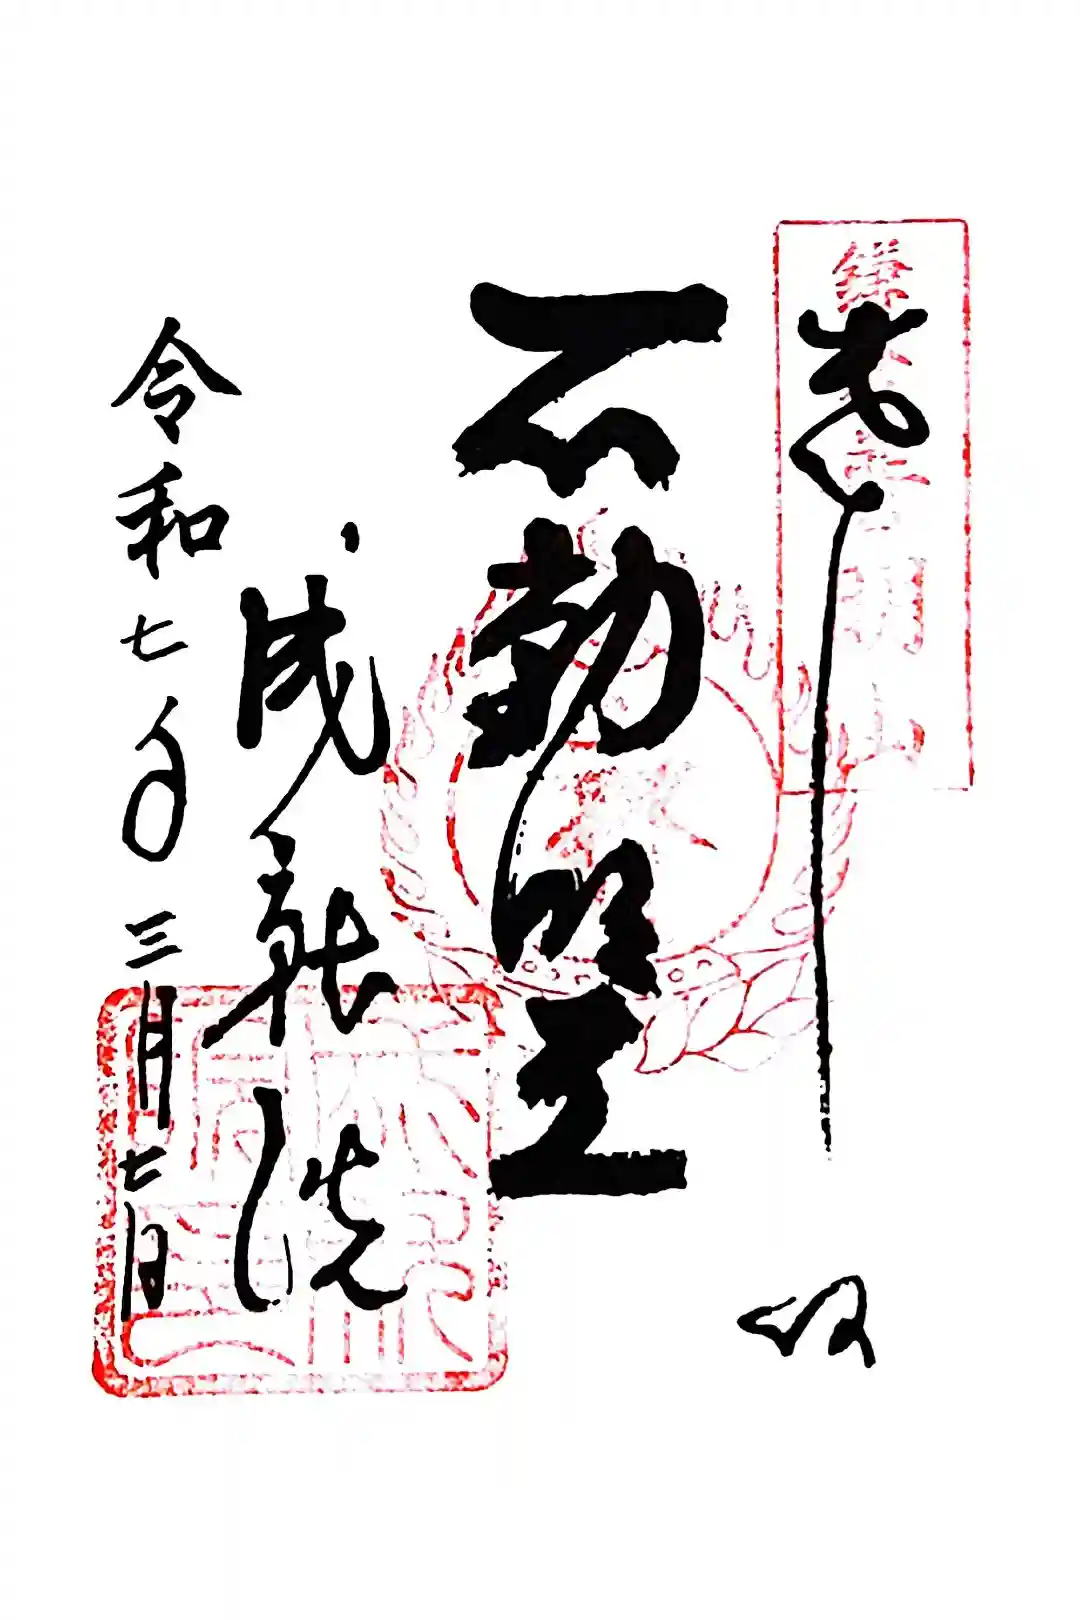 奉拝
不動明王
成就院
令和七年三月七日